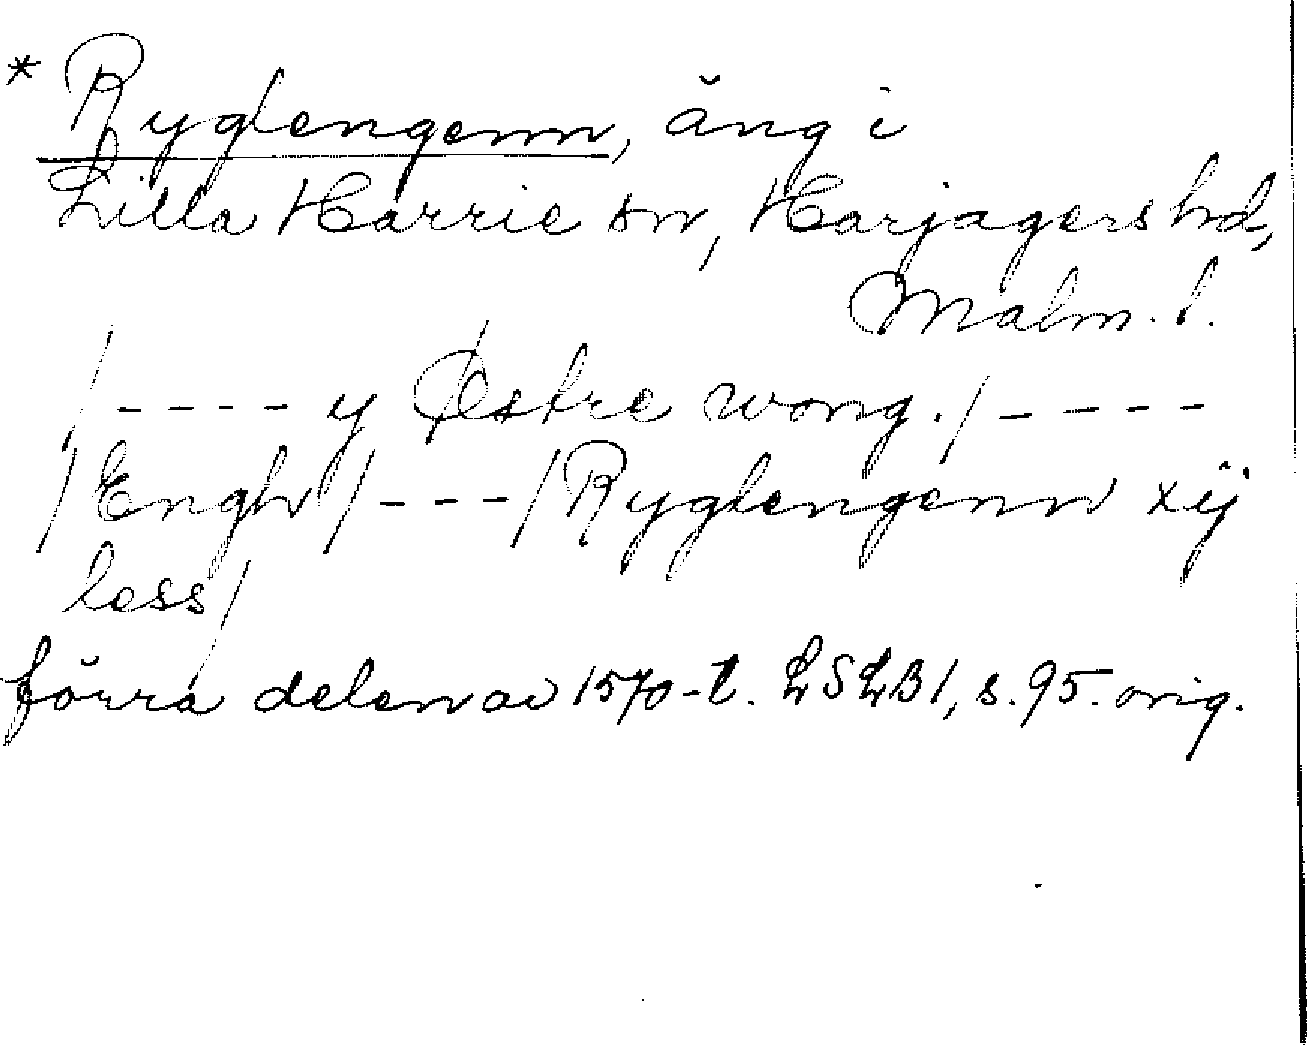 * Ryglengenn, äng i
Lilla Harrie sn, Harjagers hd,
Malm. l.
/---- y Østre wong./----
/Engh/---/Ryglengenn xij
less/
förra delen av 1570-t. LSLB1, s. 95. orig.